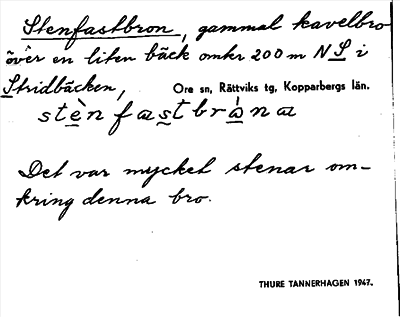 Stenfastbron, gammal kavelbro
över en liten bäck omkr 200 m N S i
Stridbäcken, Ore sn, Rättviks tg, Kopparbergs län.
stènfastbròna
Det var mycket stenar om-
kring denna bro.
THURE TANNERHAGEN 1947.